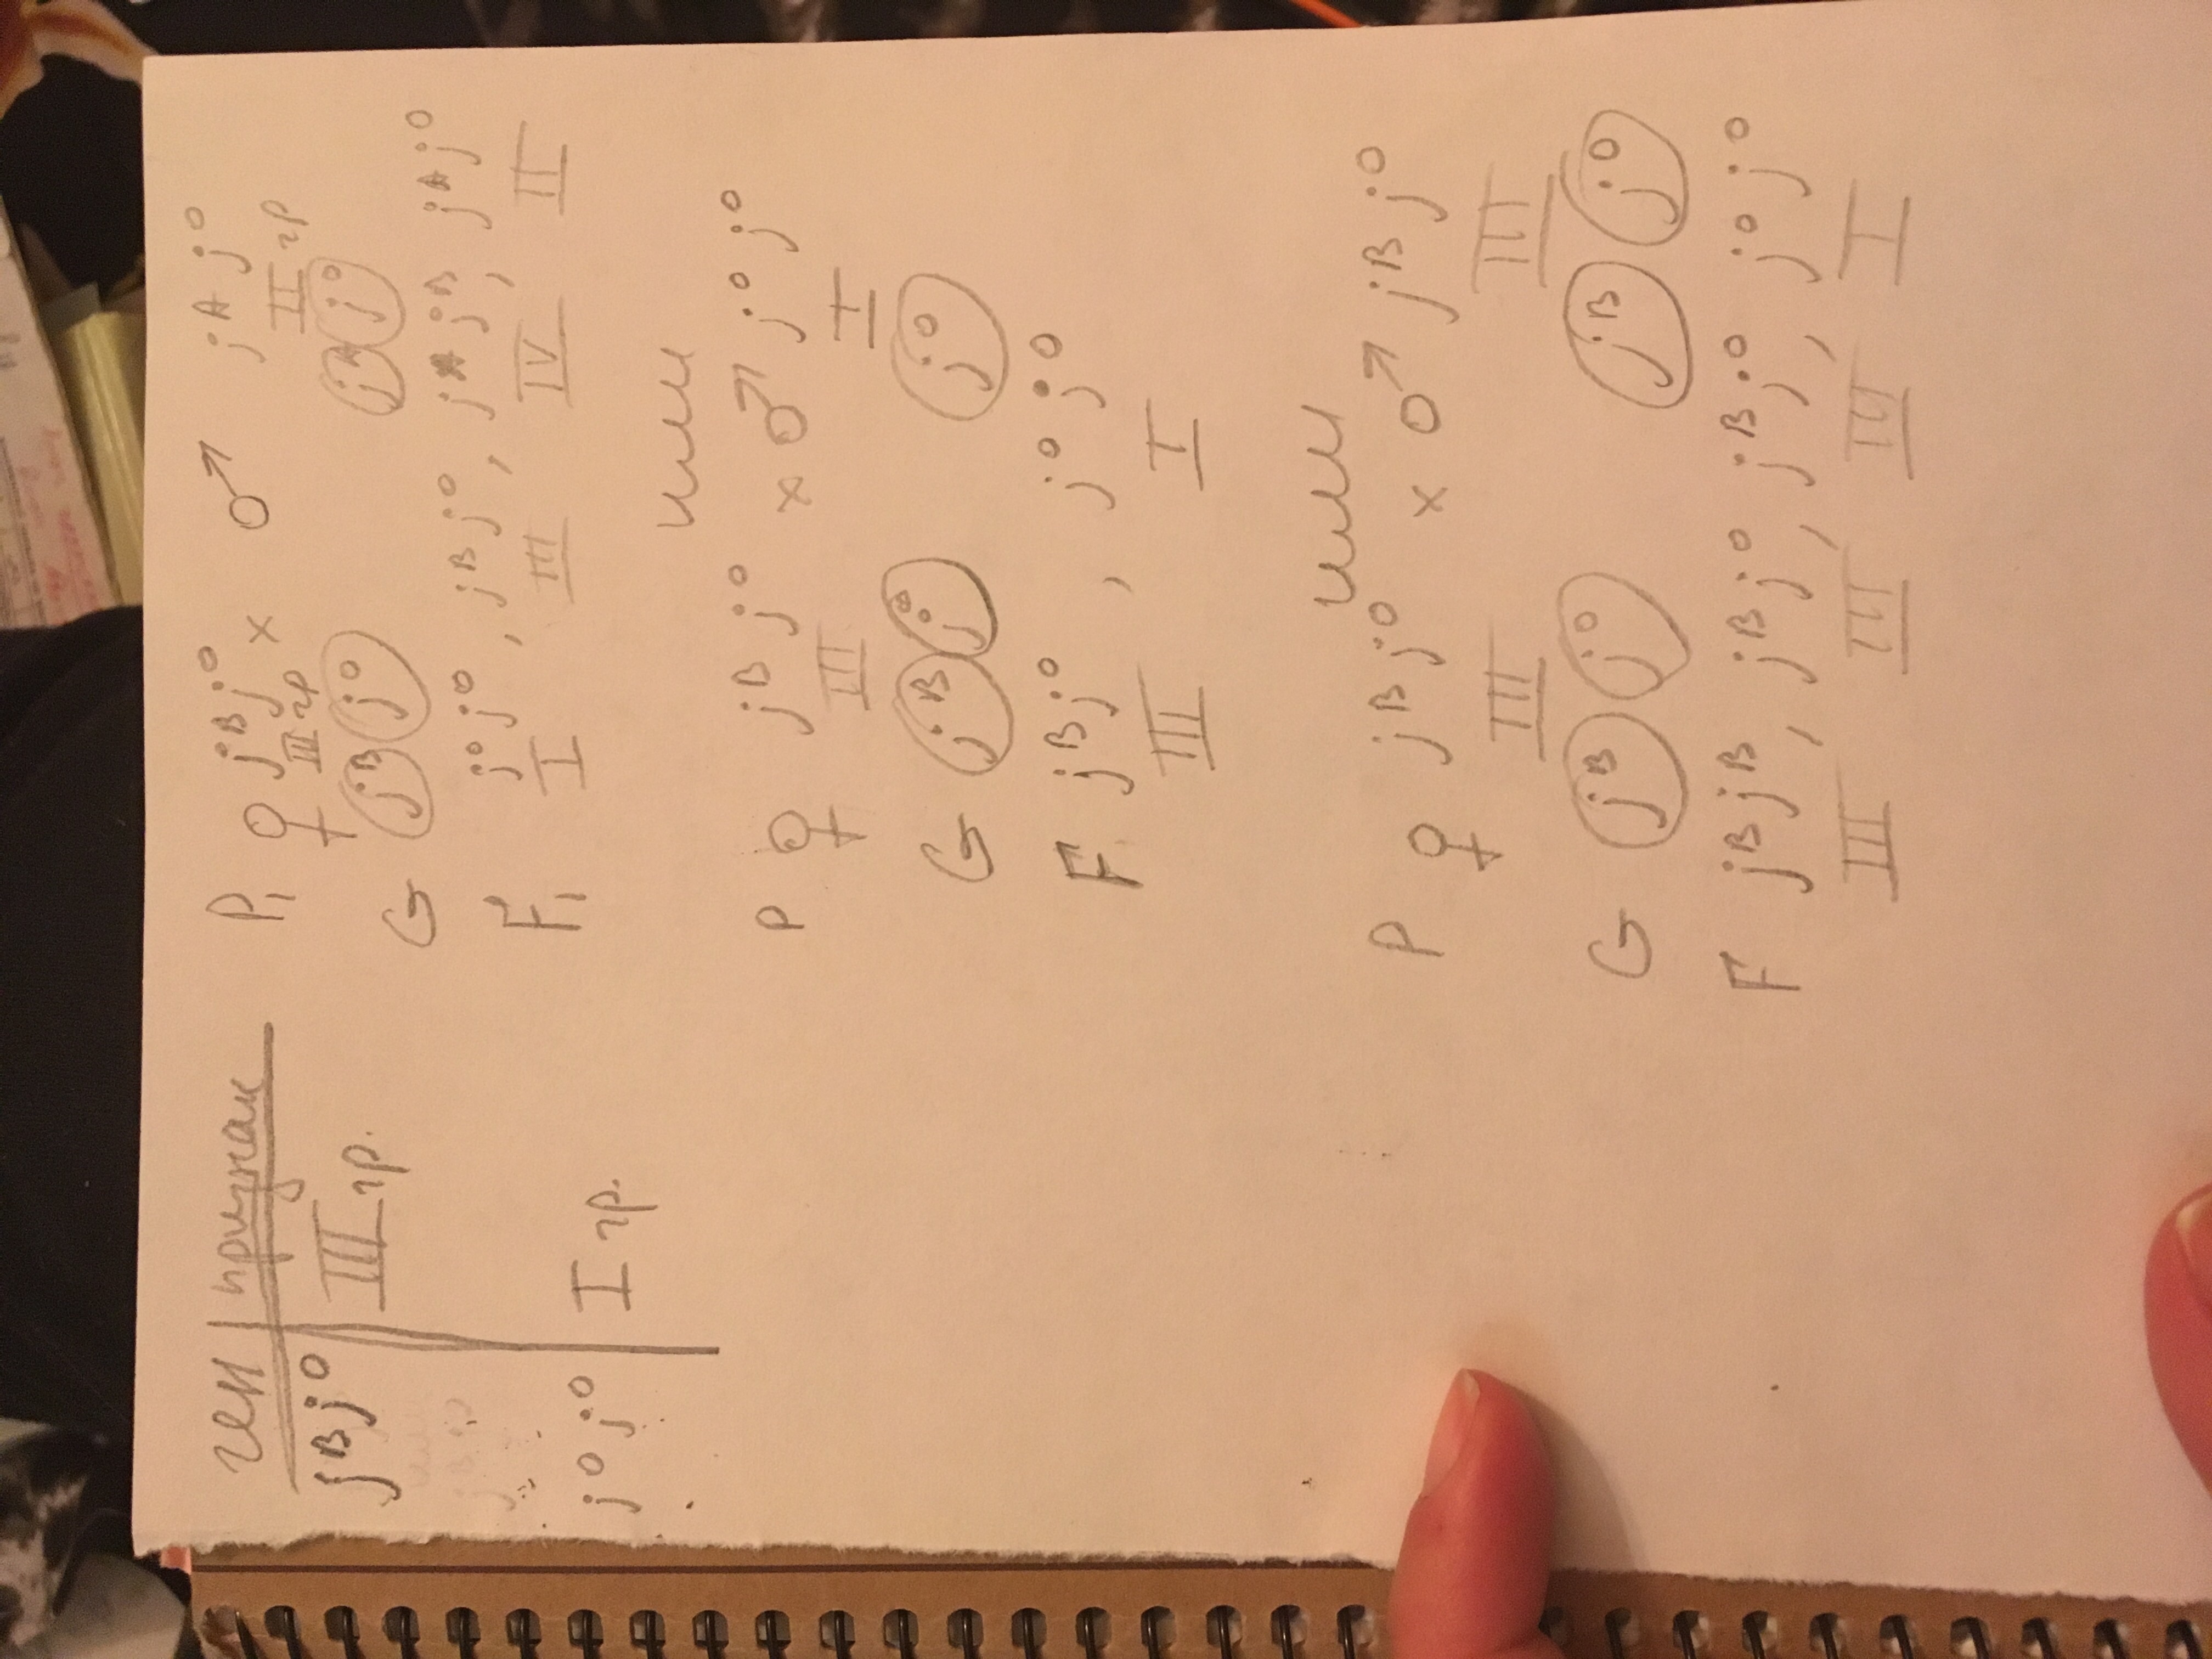 ген | признак
jᴮjᴼ III гр.
jᴼjᴼ I гр.
P₁ ♀ jᴮjᴼ × ♂ jᴬjᴼ
III гр II гр
G jᴮ jᴼ jᴬ jᴼ
F₁ jᴼjᴼ, jᴮjᴼ, jᴬjᴮ, jᴬjᴼ
I III IV II
или
P ♀ jᴮjᴼ × ♂ jᴼjᴼ
III I
G jᴮ jᴼ jᴼ
F jᴮjᴼ, jᴼjᴼ
III I
или
P ♀ jᴮjᴼ × ♂ jᴮjᴼ
III III
G jᴮ jᴼ jᴮ jᴼ
F jᴮjᴮ, jᴮjᴼ, jᴮjᴼ, jᴼjᴼ
III III III I